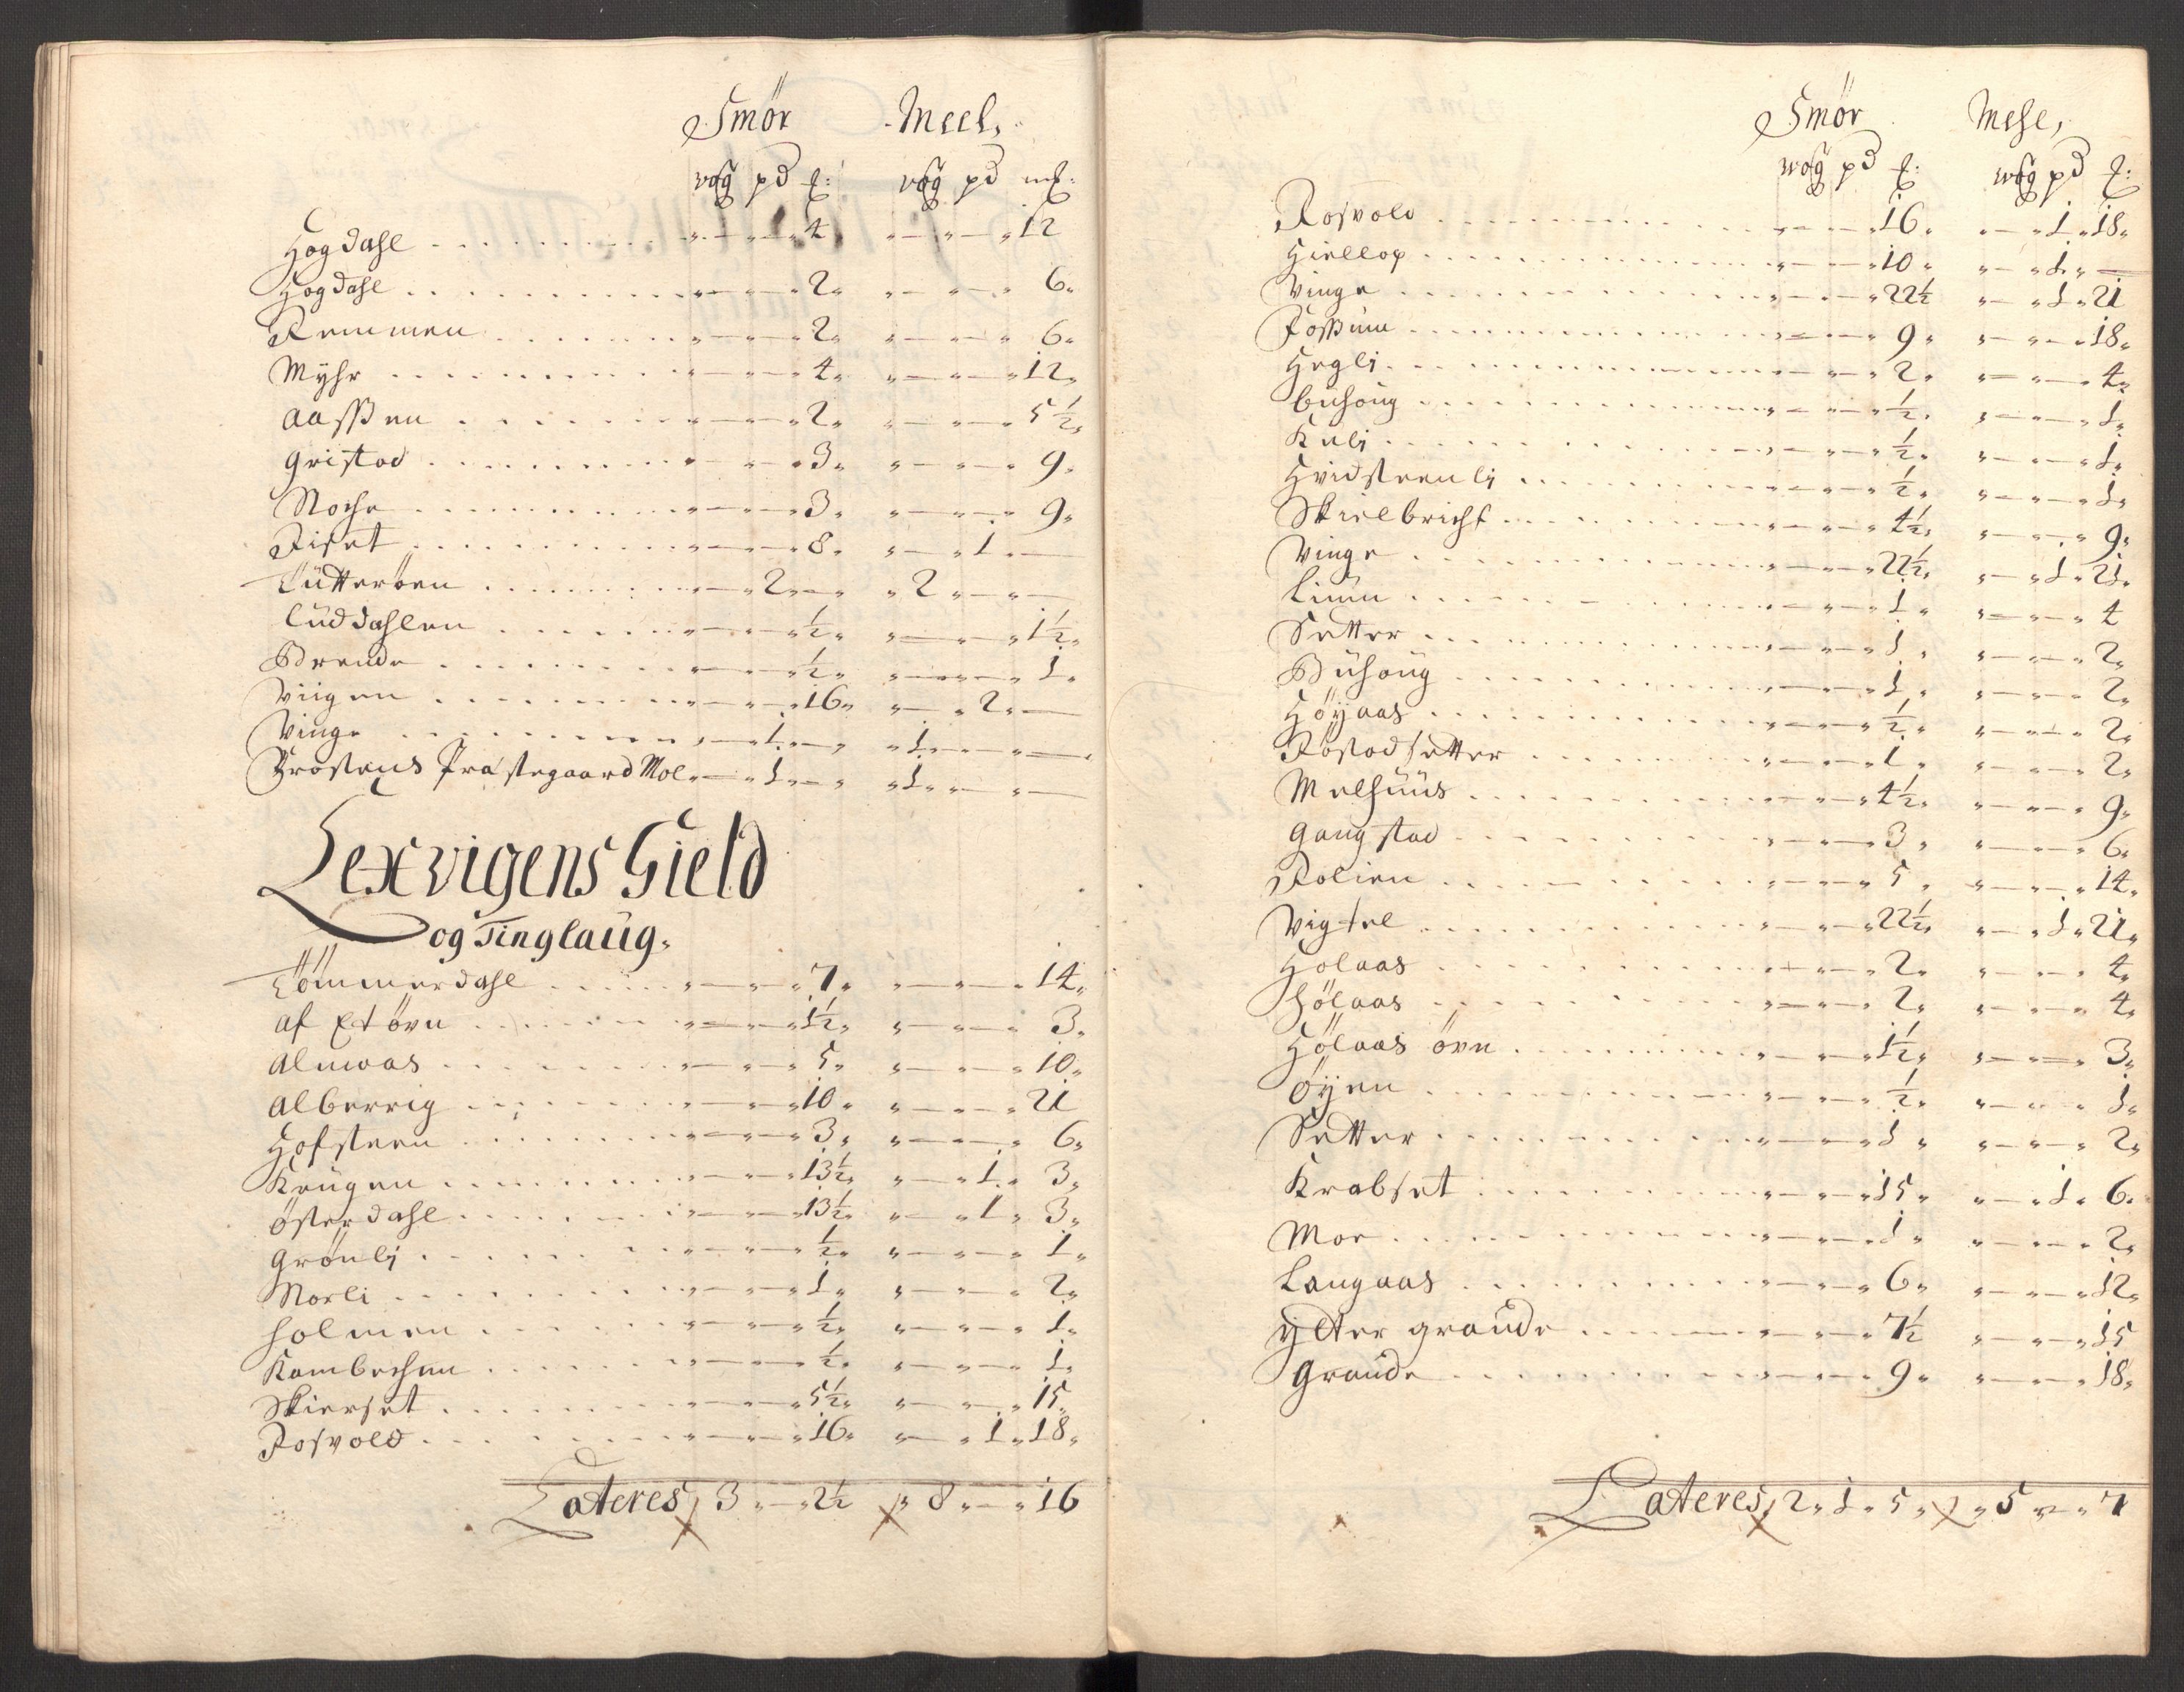 Smör Meel,
wog pd ℔: wog pd m℔:
Hogdahl . . . „ — „ — „ 4 „ — „ — „ 12
Hogdahl . . . „ — „ — „ 2 „ „ — „ — „ 6 „
Remmen . . . „ — „ — „ 2 „ „ — „ — „ 6 „
Myhr . . . „ — „ — „ 4 „ „ — „ — „ 12 „
Aassen . . . „ — „ — „ 2 „ „ — „ — „ 5 ½ „
Gristad . . . „ — „ — „ 3 „ „ — „ — „ 9 „
. . . „ — „ — „ 3 „ „ — „ — „ 9 „
Fiset . . . „ — „ — „ 8 „ „ — „ 1 „ —
Tütteröen . . . „ — „ 2 „ — „ „ 2 „ — „ —
Lüddahlen . . . „ — „ — „ ½ „ „ — „ — „ 1½ „
Brende . . . „ — „ — „ ½ „ „ — „ — „ 1 „
Viigen . . . „ — „ — „ 16 „ „ — „ 2 „ —
Vinge . . . „ — „ 1 „ — „ „ 1 „ — „ —
Frostens Præstegaard Mol „ — „ 1 „ — „ „ 1 „ — „ —
Lexvigens Gield
og Tinglaug.
Tömmerdahl . . . „ — „ — „ 7 „ „ — „ — „ 14 „
af Et öre . . . „ — „ — „ 1½ „ „ — „ — „ 3 „
Almoas . . . „ — „ — „ 5 „ „ — „ — „ 10 „
Alberrig . . . „ — „ — „ 10 „ „ — „ — „ 21
Hofsteen . . . „ — „ — „ 3 „ „ — „ — „ 6 „
Kougen . . . „ — „ — „ 13½ „ „ — „ 1 „ 3 „
Österdahl . . . „ — „ — „ 13½ „ „ — „ 1 „ 3 „
Grönlj . . . „ — „ — „ ½ „ „ — „ — „ 1 „
Morli . . . „ — „ — „ 1 „ „ — „ — „ 2 „
Holmen . . . „ — „ — „ ½ „ „ — „ — „ 1 „
Kambechen . . . „ — „ — „ ½ „ „ — „ — „ 1 „
Skierset . . . „ — „ — „ 5½ „ „ — „ — „ 15 „
Rosvold . . . „ — „ — „ 16 „ „ — „ 1 „ 18 „
Lateres 3 „ — „ 2½ „ 8 „ — „ 16
Smör Mehl,
wog pd ℔: wog pd ℔:
Rosvold . . . „ — „ — „ 16 „ „ — „ 1 „ 18 „
Hiellop . . . „ — „ — „ 10 „ „ — „ 1 „ —
Vinge . . . „ — „ — „ 22½ „ — „ 1 „ 21
Fossum . . . „ — „ — „ 9 „ „ — „ — „ 18 „
Heglj . . . „ — „ — „ 2 „ „ — „ — „ 4 „
Buhoug . . . „ — „ — „ ½ „ „ — „ — „ 1 „
Kulj . . . „ — „ — „ ½ „ „ — „ — „ 1 „
Hvidsteenlj . . . „ — „ — „ ½ „ „ — „ — „ 1 „
Skielbricht . . . „ — „ — „ 4½ „ „ — „ — „ 9 „
Vinge . . . „ — „ — „ 22½ „ „ — „ 1 „ 21 „
Lium . . . „ — „ — „ 1 „ „ — „ — „ 4
Setter . . . „ — „ — „ 1 „ „ — „ — „ 2 „
Buhoug . . . „ — „ — „ 1 „ „ — „ — „ 2 „
Höÿaas . . . „ — „ — „ ½ „ „ — „ — „ 2 „
Röstadsetter . . . „ — „ — „ 1 „ „ — „ — „ 2 „
Melhuus . . . „ — „ — „ 4½ „ „ — „ — „ 9 „
Gangstad . . . „ — „ — „ 3 „ „ — „ — „ 6 „
Rolien . . . „ — „ — „ 5 „ „ — „ — „ 14 „
Vigtel . . . „ — „ — „ 22½ „ „ — „ 1 „ 21 „
Holaas . . . „ — „ — „ 2 „ „ — „ — „ 4 „
Hölaas . . . „ — „ — „ 2 „ „ — „ — „ 4 „
Hölaas öre . . . „ — „ — „ 1½ „ „ — „ — „ 3 „
Öÿen . . . „ — „ — „ ½ „ „ — „ — „ 1 „
Setter . . . „ — „ — „ 1 „ „ — „ — „ 2 „
Krabset . . . „ — „ — „ 15 „ „ — „ 1 „ 6 „
Mor . . . „ — „ — „ 1 „ „ — „ — „ 2 „
Langaas . . . „ — „ — „ 6 „ „ — „ — „ 12 „
ÿtter grande . . . „ — „ — „ 7½ „ — „ — „ 15
Grande . . . „ — „ — „ 9 „ „ — „ — „ 18 „
Lateres 2 „ 1 „ 5 „ „ 5 „ — „ 7